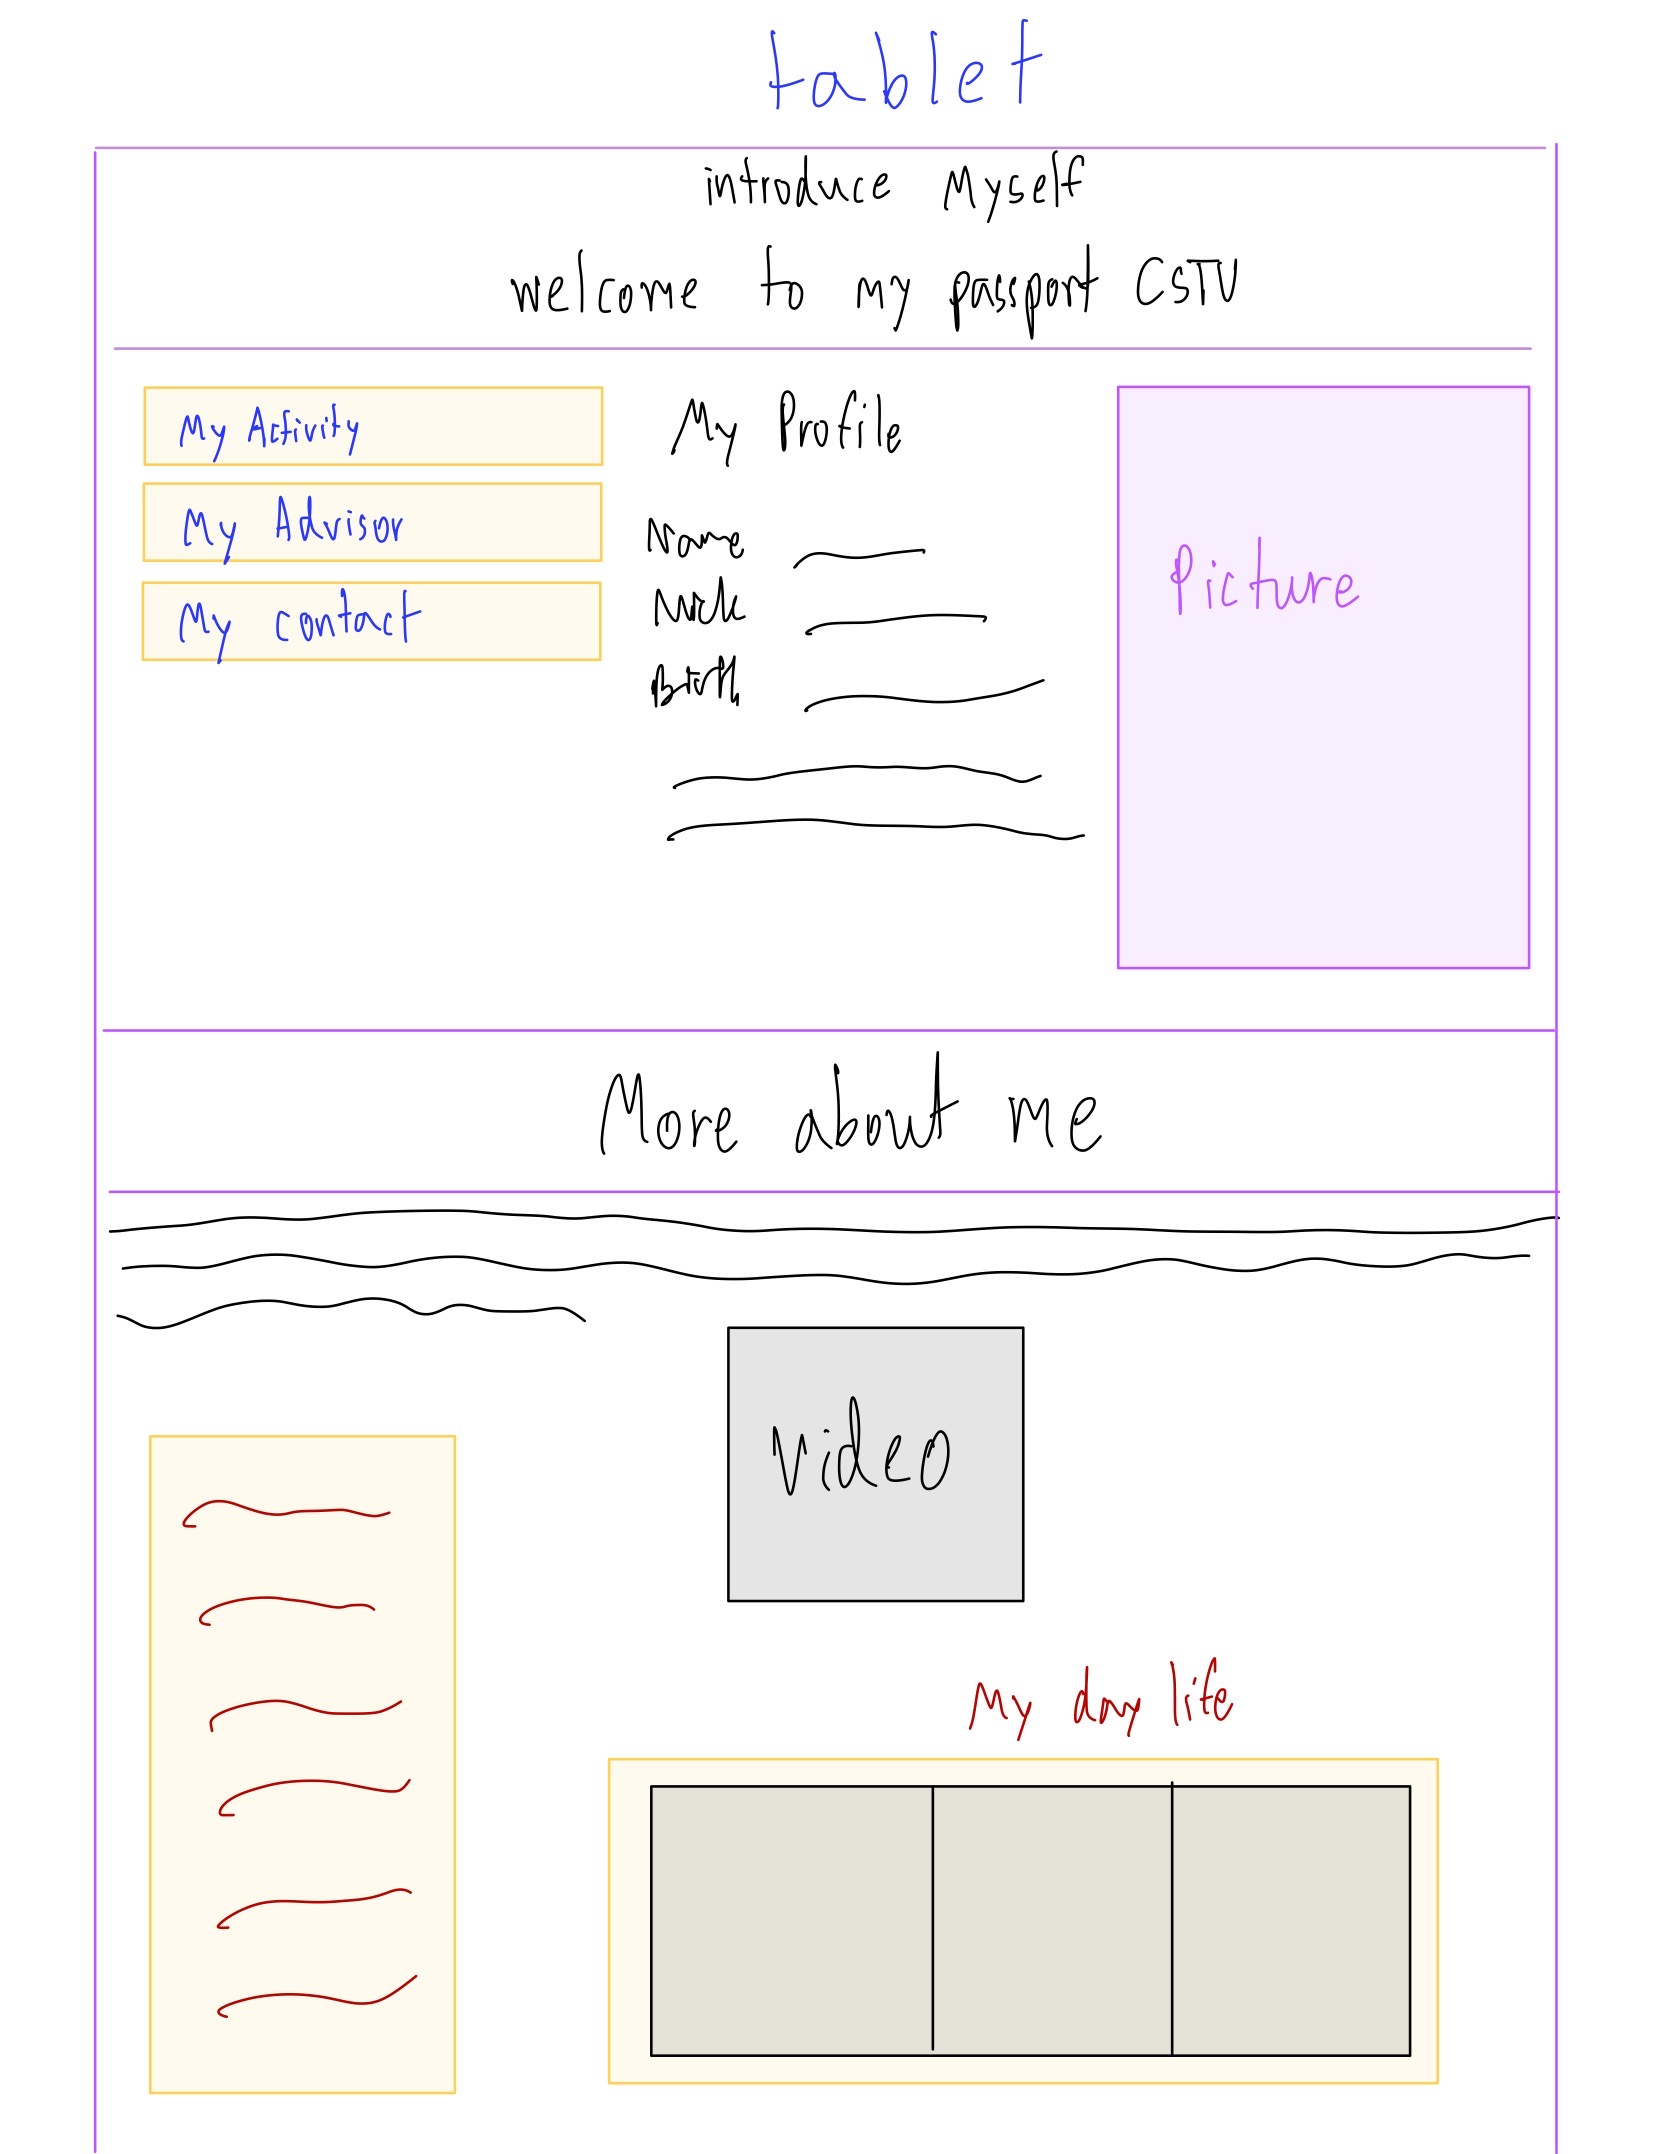 tablet
introduce Myself
welcome to my passport CSTU
My Activity
My Advisor
My contact
My Profile
Name
Nick
Birth
Picture
More about me
Video
My day life